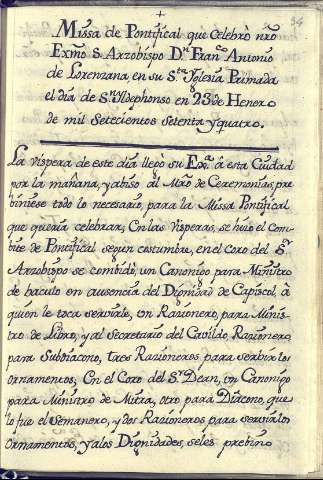 +
94
Missa de Pontifical que Celebrò nro
Exmo. S. Arzobispo Dn. Franco. Antonio
de Lorenzana en su Sta. Yglesia Primada
el dia de Sn. Yldephonso en 23 de Henero
de mil Setecientos Setenta y quatro.
La vispera de este dia llegò su Exa. à esta Ciudad
por la mañana, y abiso al Mro. de Ceremonias, pre
biniese todo lo necesario, para la Missa Pontifical
que queria celebrar; En las Visperas, se hizo el com-
bite de Pontifical segun costumbre, en el coro del Sr.
Arzobispo se combidò, un Canonigo para Ministro
de baculo en ausencia del Dignidad de Capiscol, à
quien le toca servirle, un Razionero, para Minis-
tro de Libro, y al Secretario del Cavildo Razionero,
para Subdiacono, tres Razioneros para serbir los
ornamentos; En el Coro del Sr. Dean, un Canonigo
para Ministro de Mitra, otro para Diacono, que
lo fue el Semanero, y dos Razioneros para servir los
ornamentos, y a los Dignidades, se les prebino